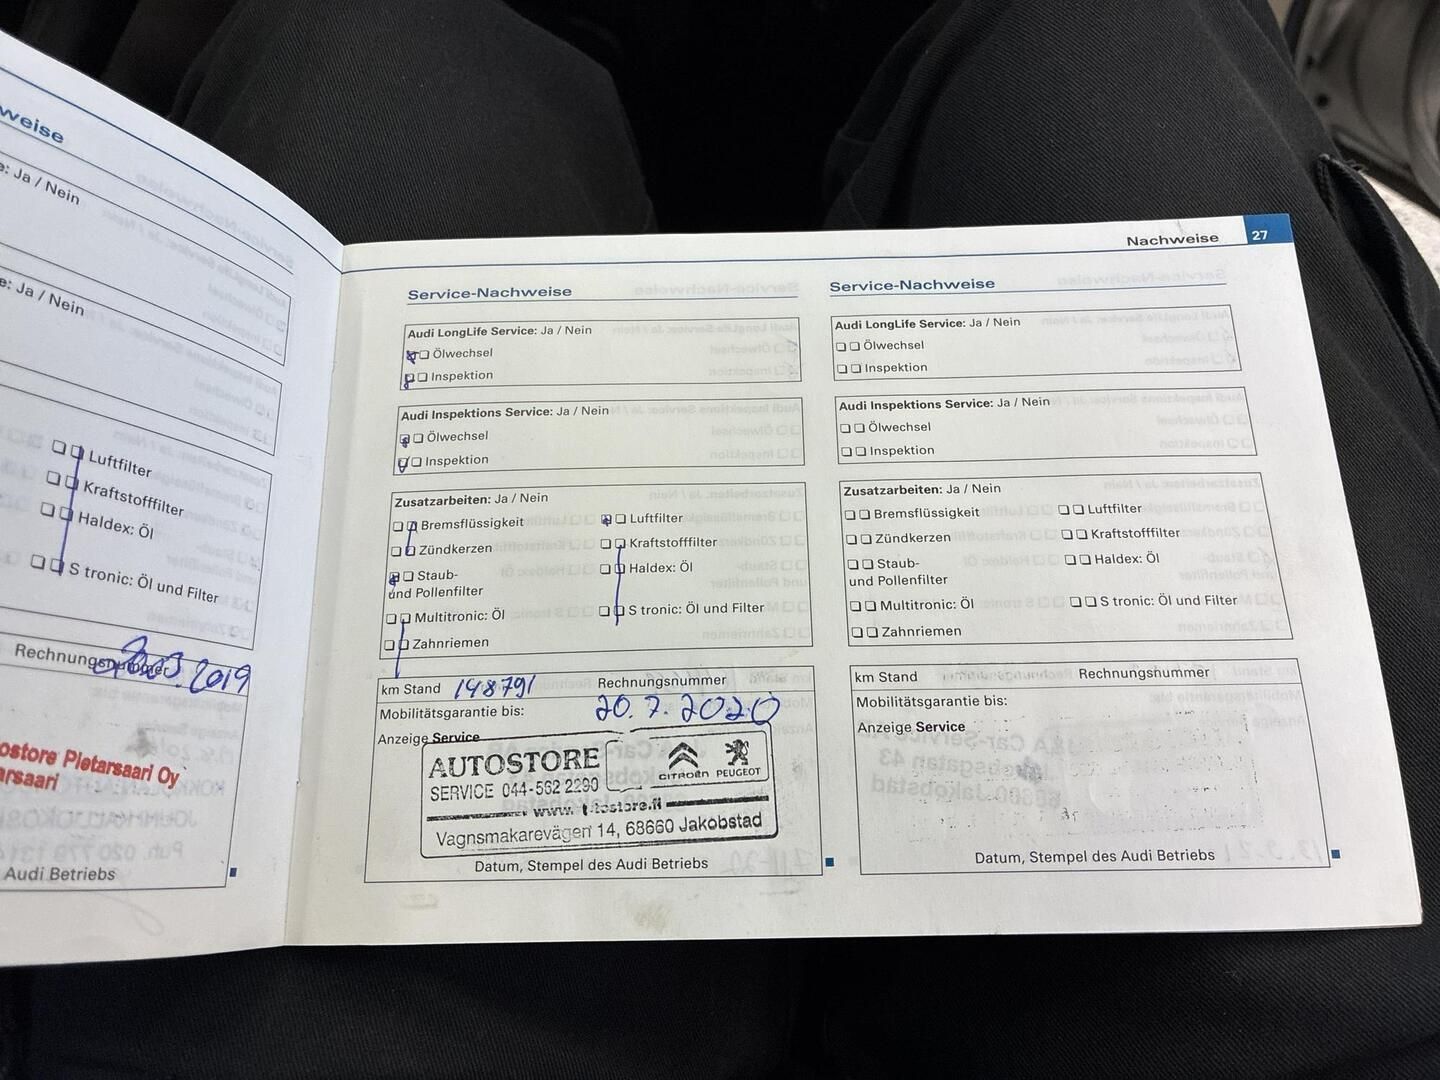 weise
e: Ja / Nein
e: Ja / Nein
Luftfilter
Kraftstofffilter
Haldex: Öl
S tronic: Öl und Filter
Rechnungsnummer
2019
ostore Pietarsaari Oy
arsaari
Audi Betriebs
Nachweise 27
Service-Nachweise
Audi LongLife Service: Ja / Nein
Ölwechsel
Inspektion
Audi Inspektions Service: Ja / Nein
Ölwechsel
Inspektion
Zusatzarbeiten: Ja / Nein
Bremsflüssigkeit Luftfilter
Zündkerzen Kraftstofffilter
Staub- Haldex: Öl
und Pollenfilter
Multitronic: Öl S tronic: Öl und Filter
Zahnriemen
km Stand 148791 Rechnungsnummer
Mobilitätsgarantie bis: 20.7.2020
Anzeige Service
AUTOSTORE
SERVICE 044-562 2290
CITROËN PEUGEOT
Vagnsmakarevägen 14, 68660 Jakobstad
Datum, Stempel des Audi Betriebs
Service-Nachweise
Audi LongLife Service: Ja / Nein
Ölwechsel
Inspektion
Audi Inspektions Service: Ja / Nein
Ölwechsel
Inspektion
Zusatzarbeiten: Ja / Nein
Bremsflüssigkeit Luftfilter
Zündkerzen Kraftstofffilter
Staub- Haldex: Öl
und Pollenfilter
Multitronic: Öl S tronic: Öl und Filter
Zahnriemen
km Stand Rechnungsnummer
Mobilitätsgarantie bis:
Anzeige Service
Datum, Stempel des Audi Betriebs